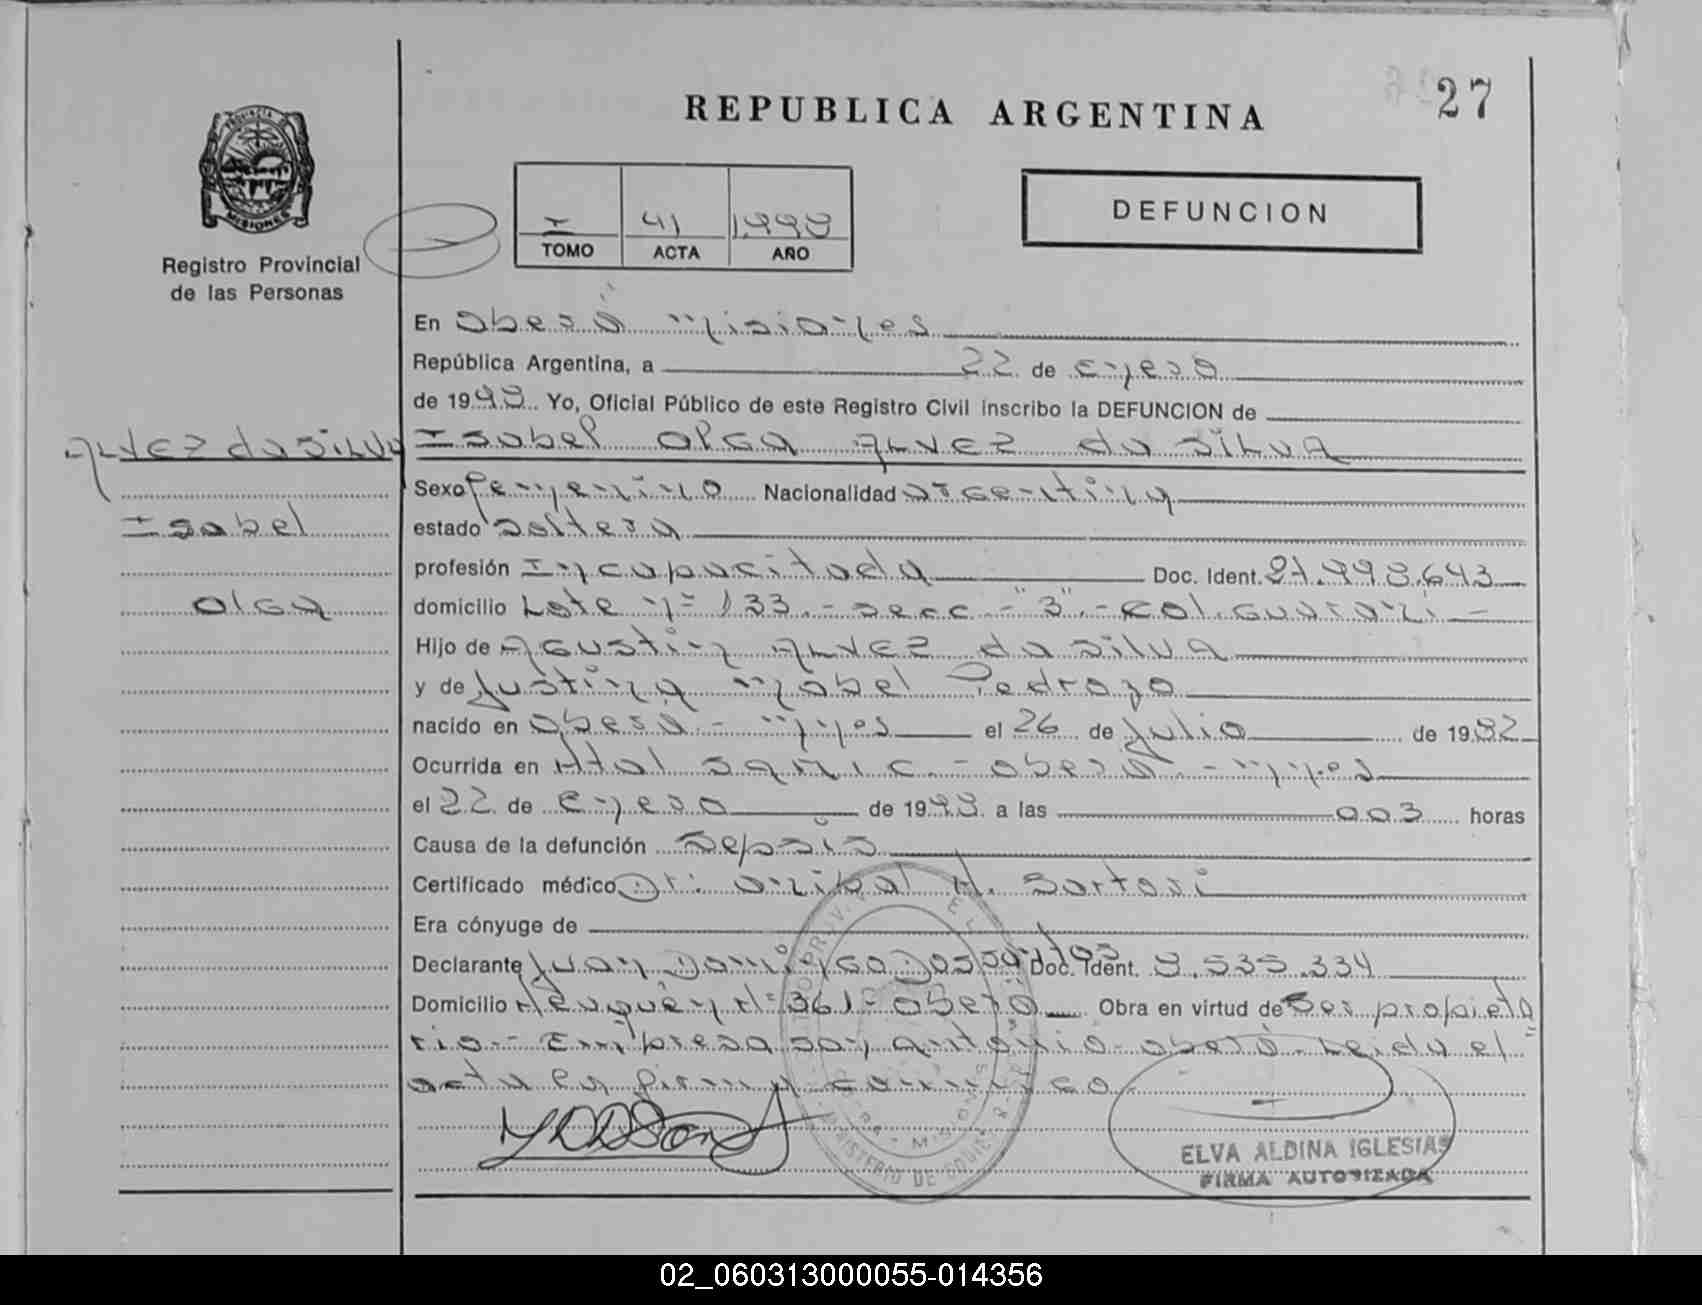 27
REPUBLICA ARGENTINA
PROVINCIA
MISIONES
Registro Provincial
de las Personas
I 41 1.998
TOMO ACTA AÑO
DEFUNCION
En Oberá Misiones
República Argentina, a 22 de Enero
de 1998 Yo, Oficial Público de este Registro Civil inscribo la DEFUNCION de
ALVEZ da SILVA
Isabel
Olga
Isabel Olga ALVEZ da SILVA
Sexo femenino Nacionalidad argentina
estado soltera
profesión Incapacitada Doc. Ident.
domicilio Lote nº 133.- secc.-"3".- Col. Guaraní -
Hijo de Agustin ALVEZ da SILVA
y de Justina Mabel Pedrozo
nacido en Oberá - Mnes el 26 de Julio de 1982
Ocurrida en Htal SAMIC.- Oberá.- Mnes
el 22 de Enero de 1998 a las 003 horas
Causa de la defunción Sepsis
Certificado médico Dr. Anibal H. Sartori
Era cónyuge de
Declarante Juan Domingo Dos Santos Doc. Ident. 8.535.334
Domicilio Neuquén Nº 361 - Oberá Obra en virtud de Ser propieta
rio - Empresa San Antonio - Oberá. Leida el
acta la firma conmigo.-
ELVA ALDINA IGLESIAS
FIRMA AUTORIZADA
02_060313000055-014356